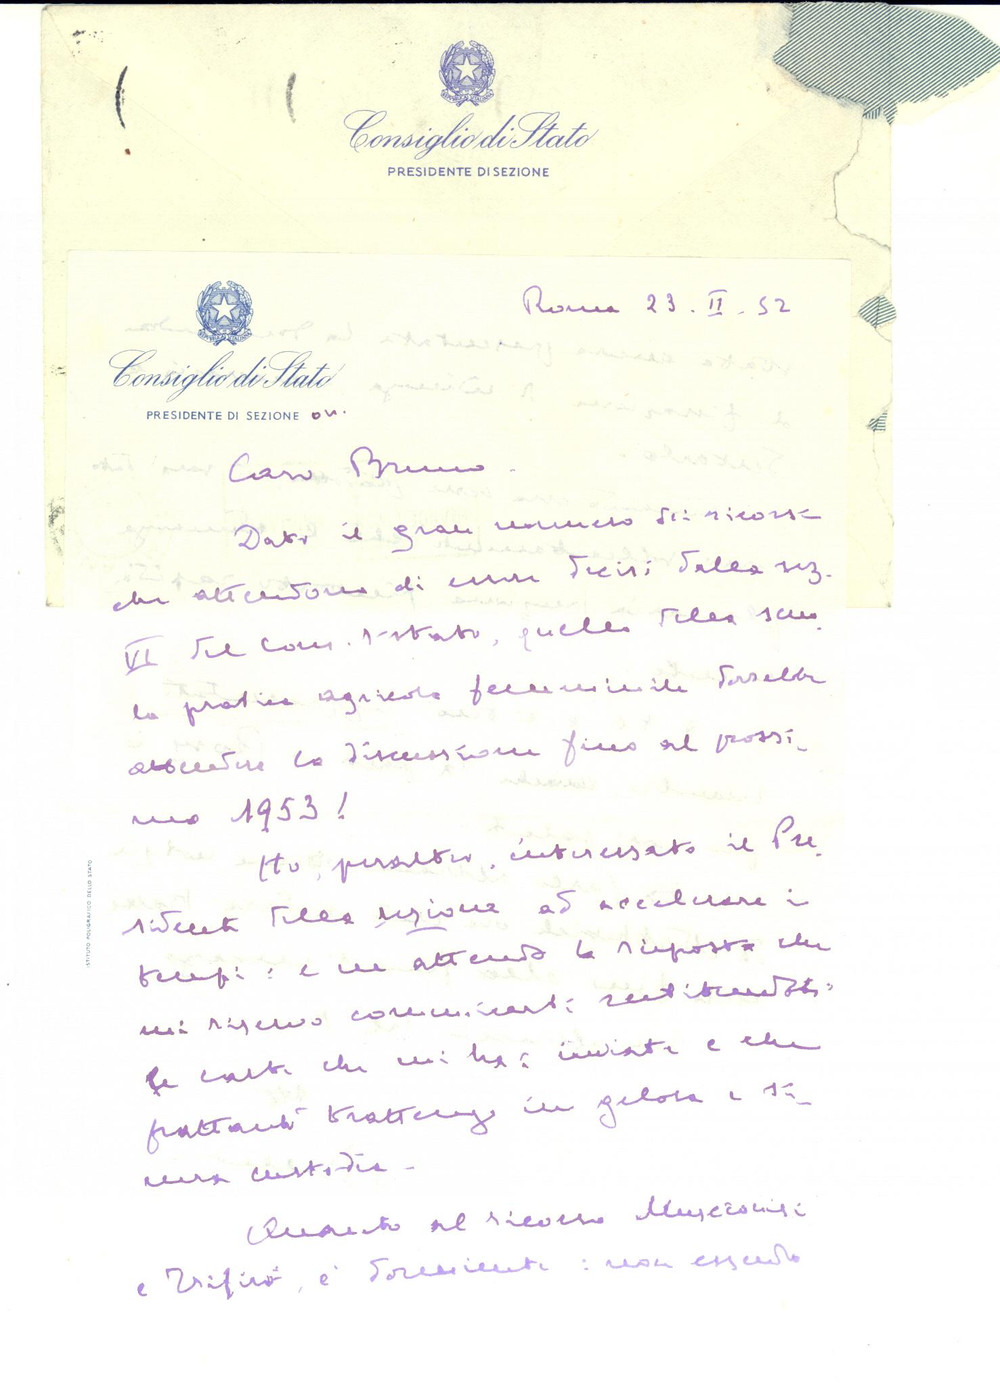 Consiglio di Stato
PRESIDENTE DI SEZIONE
Roma 23. II. 52
Consiglio di Stato
PRESIDENTE DI SEZIONE on.
Caro Bruno.
Dato il gran numero dei ricorsi
che attendono di essere decisi dalla sez.
VI del Cons. Stato, quello della scuo
la pratica agricola femminile dovrebbe
attendere la discussione fino al prossi-
mo 1953!
Ho, peraltro, interessato il Pre
sidente della sezione ad accelerare i
tempi: e ne attendo la risposta che
mi riservo comunicarti restituendoti
le carte che mi hai inviate e che
frattanto trattengo in gelosa e si-
cura custodia -
Quanto al ricorso
e Trifirò, è dormiente: non essendo
ISTITUTO POLIGRAFICO DELLO STATO